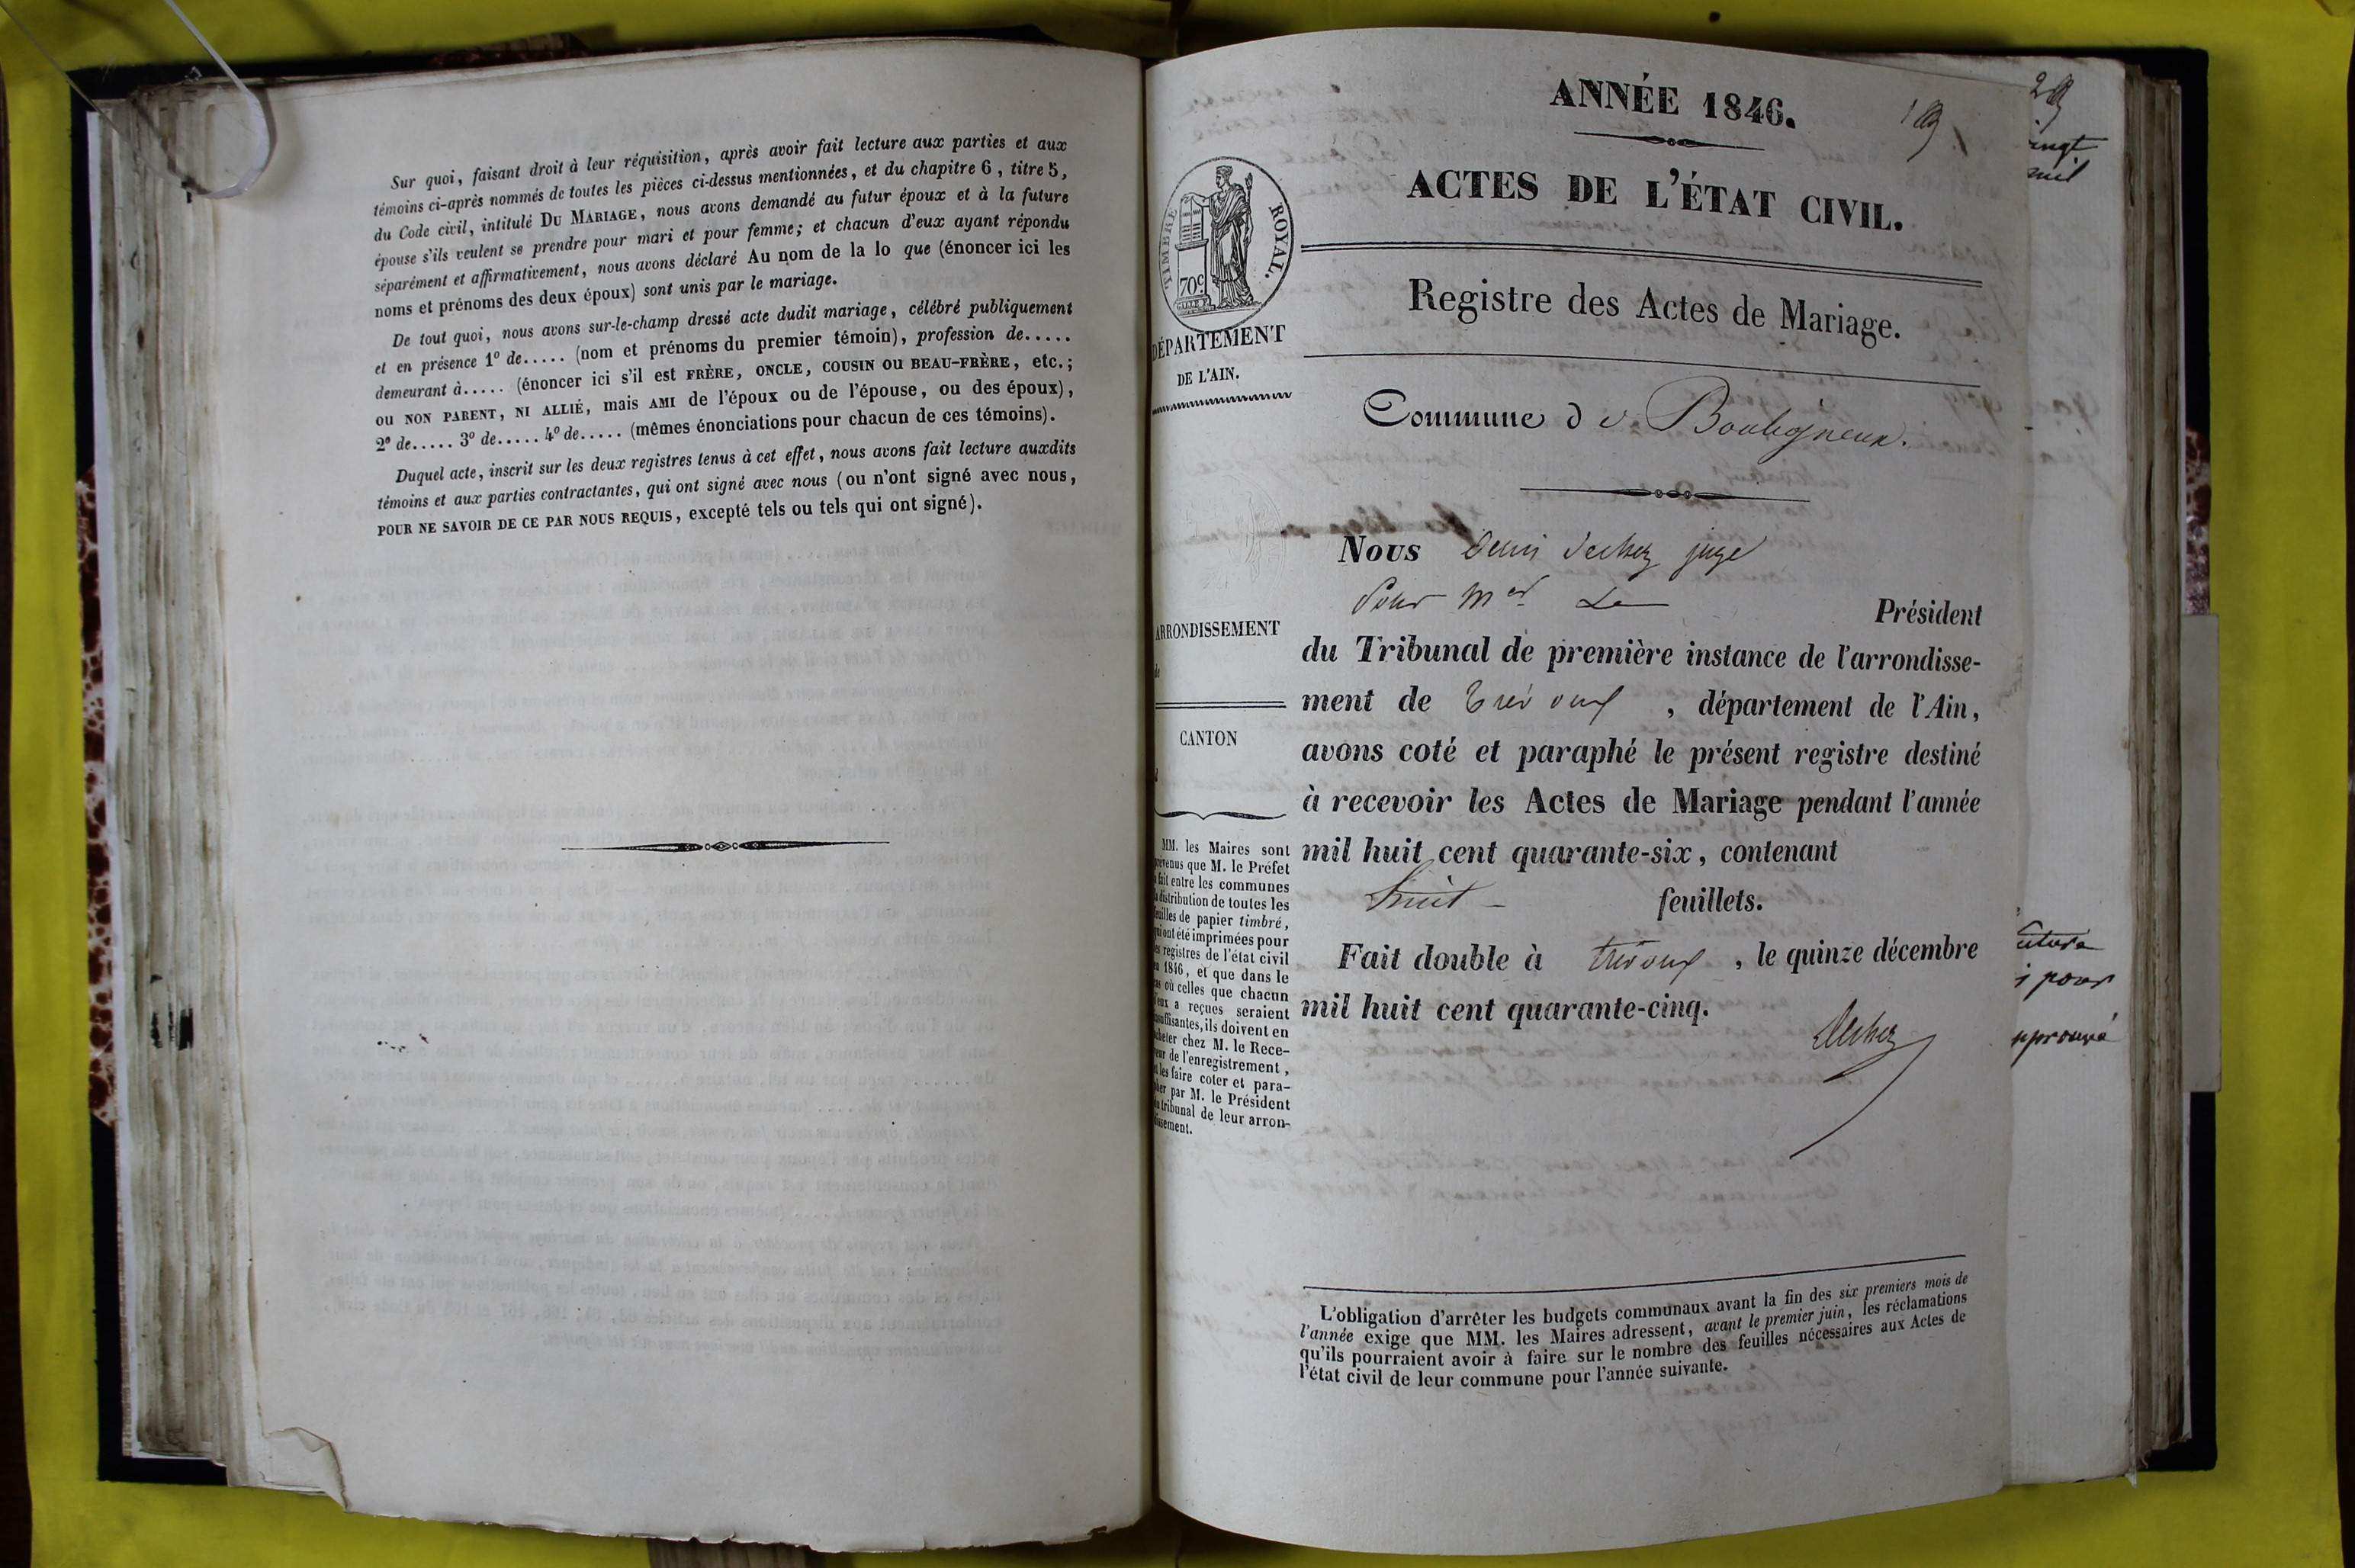 Sur quoi, faisant droit à leur réquisition, après avoir fait lecture aux parties et aux
témoins ci-après nommés de toutes les pièces ci-dessus mentionnées, et du chapitre 6, titre 5,
du Code civil, intitulé DU MARIAGE, nous avons demandé au futur époux et à la future
épouse s'ils veulent se prendre pour mari et pour femme; et chacun d'eux ayant répondu
séparément et affirmativement, nous avons déclaré Au nom de la lo que (énoncer ici les
noms et prénoms des deux époux) sont unis par le mariage.
De tout quoi, nous avons sur-le-champ dressé acte dudit mariage, célébré publiquement
et en présence 1º de..... (nom et prénoms du premier témoin), profession de.....
demeurant à..... (énoncer ici s'il est FRÈRE, ONCLE, COUSIN OU BEAU-FRÈRE, etc.;
ou NON PARENT, NI ALLIÉ, mais AMI de l'époux ou de l'épouse, ou des époux),
2º de..... 3º de..... 4º de..... (mêmes énonciations pour chacun de ces témoins).
Duquel acte, inscrit sur les deux registres tenus à cet effet, nous avons fait lecture auxdits
témoins et aux parties contractantes, qui ont signé avec nous (ou n'ont signé avec nous,
POUR NE SAVOIR DE CE PAR NOUS REQUIS, excepté tels ou tels qui ont signé).
ANNÉE 1846.
ACTES DE L'ÉTAT CIVIL.
TIMBRE ROYAL.
70c
DÉPARTEMENT
DE L'AIN.
Registre des Actes de Mariage.
Commune de Bouligneux.
Nous Denis Dechez juge
Pour Mr Le
Président
du Tribunal de première instance de l'arrondisse-
ment de Trévoux, département de l'Ain,
avons coté et paraphé le présent registre destiné
à recevoir les Actes de Mariage pendant l'année
mil huit cent quarante-six, contenant
huit feuillets.
Fait double à trévoux, le quinze décembre
mil huit cent quarante-cinq.
Dechez
ARRONDISSEMENT
de
CANTON
d
MM. les Maires sont
prévenus que M. le Préfet
a fait entre les communes
la distribution de toutes les
feuilles de papier timbré,
qui ont été imprimées pour
les registres de l'état civil
en 1846, et que dans le
cas où celles que chacun
d'eux a reçues seraient
insuffisantes, ils doivent en
acheter chez M. le Rece-
veur de l'enregistrement,
et les faire coter et para-
pher par M. le Président
du tribunal de leur arron-
dissement.
L'obligation d'arrêter les budgets communaux avant la fin des six premiers mois de
l'année exige que MM. les Maires adressent, avant le premier juin, les réclamations
qu'ils pourraient avoir à faire sur le nombre des feuilles nécessaires aux Actes de
l'état civil de leur commune pour l'année suivante.
ingt
mil
uture
i pour
pprouvé